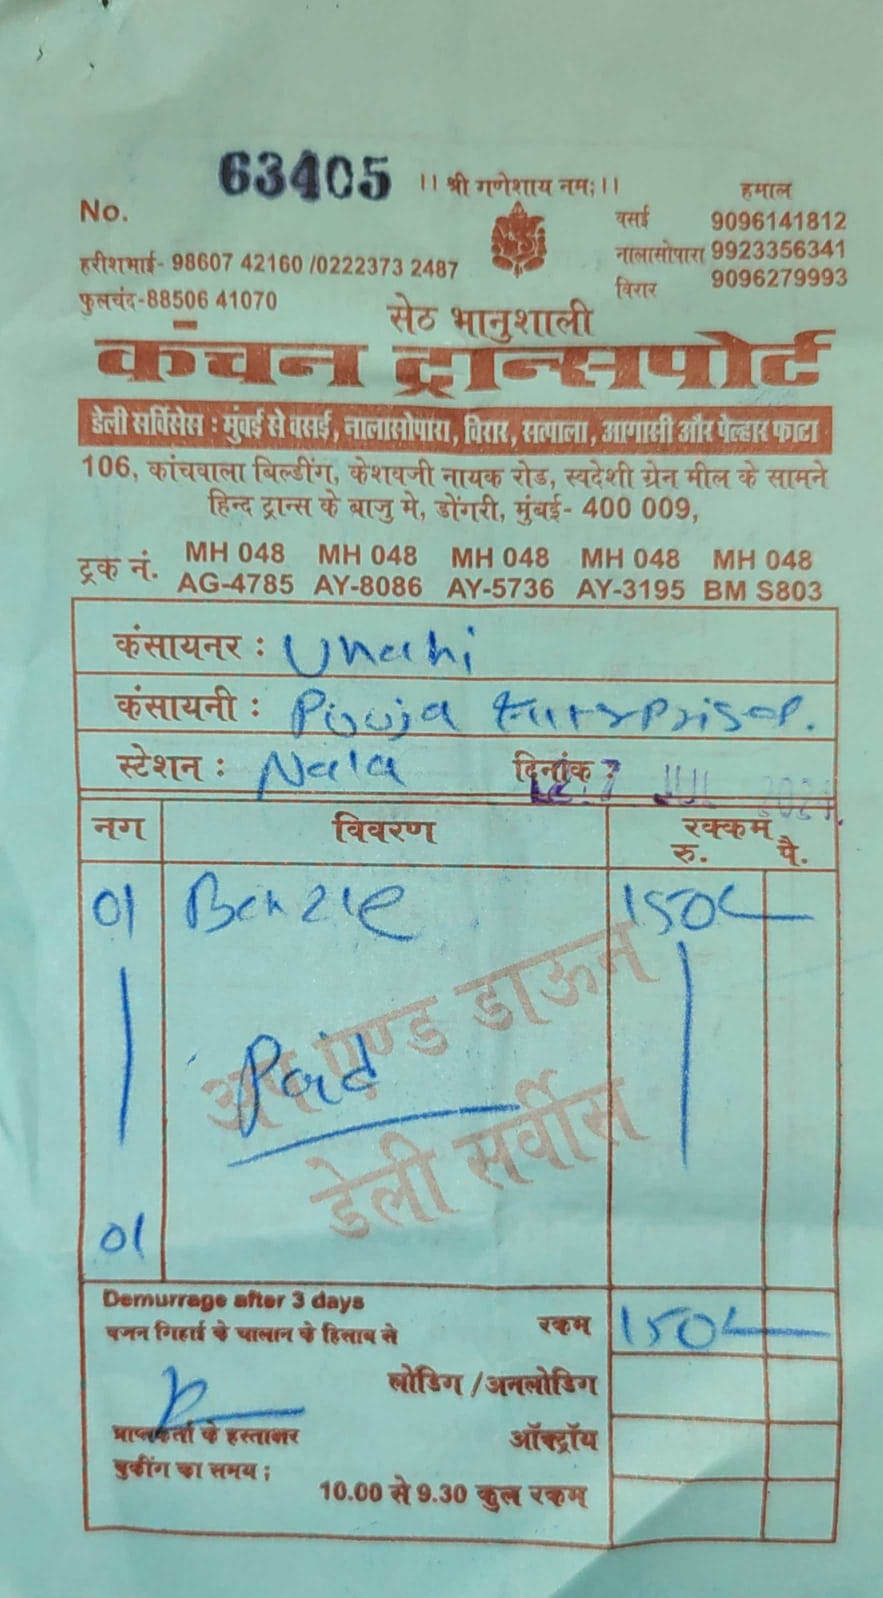 63405
No.
।। श्री गणेशाय नमः।।
हमाल
वसई 9096141812
नालासोपारा 9923356341
विरार 9096279993
हरीशभाई- 98607 42160 /0222373 2487
फुलचंद-88506 41070
सेठ भानुशाली
कंचन ट्रान्सपोर्ट
डेली सर्विसेस : मुंबई से वसई, नालासोपारा, विरार, सत्पाला, आगासी और पेल्हार फाटा
106, कांचवाला बिल्डींग, केशवजी नायक रोड, स्वदेशी ग्रेन मील के सामने
हिन्द ट्रान्स के बाजु मे, डोंगरी, मुंबई- 400 009,
ट्रक नं. MH 048 MH 048 MH 048 MH 048 MH 048
AG-4785 AY-8086 AY-5736 AY-3195 BM S803
कंसायनर :
कंसायनी : Pooja Enterprises.
स्टेशन : Nala दिनांक : JUL
नग विवरण रक्कम
रु. पै.
01 150/-
अप एण्ड डाऊन
Paid
डेली सर्वीस
01
Demurrage after 3 days
वजन गिहाई के चालान के हिसाब से
रकम 150/-
लोडिग /अनलोडिग
प्राप्तकर्ता के हस्ताक्षर
ऑक्ट्रॉय
बुकींग का समय ;
10.00 से 9.30 कुल रकम